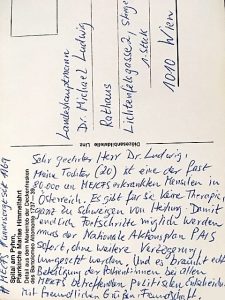 Landeshauptmann
Dr. Michael Ludwig
Rathaus
Lichtenfelsgasse 2, Stiege
1. Stock
1010 Wien
Diözesanbildstelle Linz
Spital am Pyhrn,
Pfarrkirche Mariae Himmelfahrt
des Bartolomeo Altomonte 1737–39.
#MECFS #versorgestelt 1169
Sehr geehrter Herr Dr. Ludwig!
Meine Tochter (20) ist eine der fast
80.000 an ME/CFS erkrankten Menschen in
Österreich. Es gibt für sie keine Therapie,
ganz zu schweigen von Heilung. Damit
endlich Fortschritte möglich werden
muss der Nationale Aktionsplan PAIS
sofort, ohne weitere Verzögerung,
umgesetzt werden. Und es braucht echte
Beteiligung der Patient:innen bei allen
ME/CFS betreffenden politischen Entscheid.
Mit freundlichen Grüßen